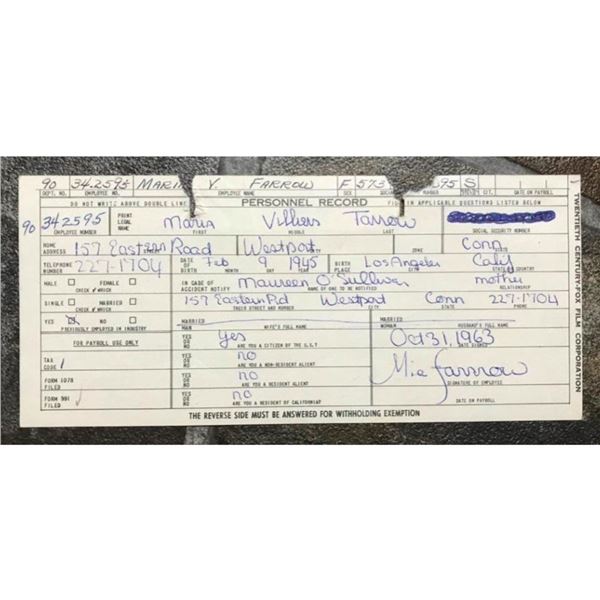 90 34.2595 V. FARROW F 573 595 S
DEPT. NO. EMPLOYEE NO. EMPLOYEE NAME NUMBER DATE ON PAYROLL
DO NOT WRITE ABOVE DOUBLE LINE PERSONNEL RECORD FILL IN APPLICABLE QUESTIONS LISTED BELOW
90 342595 PRINT LEGAL NAME Maria Villiers Farrow
EMPLOYEE NUMBER FIRST MIDDLE LAST SOCIAL SECURITY NUMBER
HOME ADDRESS 157 Eastern Road Westport Conn
STREET CITY ZONE STATE
TELEPHONE NUMBER 227-1704 DATE OF BIRTH Feb 9 1945 BIRTH PLACE Los Angeles Calif
MONTH DAY YEAR CITY STATE COUNTRY
MALE FEMALE IN CASE OF ACCIDENT NOTIFY Maureen O'Sullivan mother
CHECK WHICH RELATIONSHIP
SINGLE MARRIED 157 Eastern Rd Westport Conn 227-1704
CHECK WHICH THEIR STREET AND NUMBER CITY STATE PHONE
YES NO MARRIED MAN WIFE'S FULL NAME MARRIED WOMAN HUSBAND'S FULL NAME
PREVIOUSLY EMPLOYED IN INDUSTRY
FOR PAYROLL USE ONLY YES OR NO yes ARE YOU A CITIZEN OF THE U.S.? Oct 31, 1963
DATE SIGNED
TAX CODE 1 YES OR NO no ARE YOU A NON-RESIDENT ALIEN? Mia Farrow
SIGNATURE OF EMPLOYEE
FORM 1078 FILED YES OR NO no ARE YOU A RESIDENT ALIEN?
FORM 991 FILED YES OR NO no ARE YOU A RESIDENT OF CALIFORNIA? DATE ON PAYROLL
THE REVERSE SIDE MUST BE ANSWERED FOR WITHHOLDING EXEMPTION
TWENTIETH CENTURY-FOX FILM CORPORATION